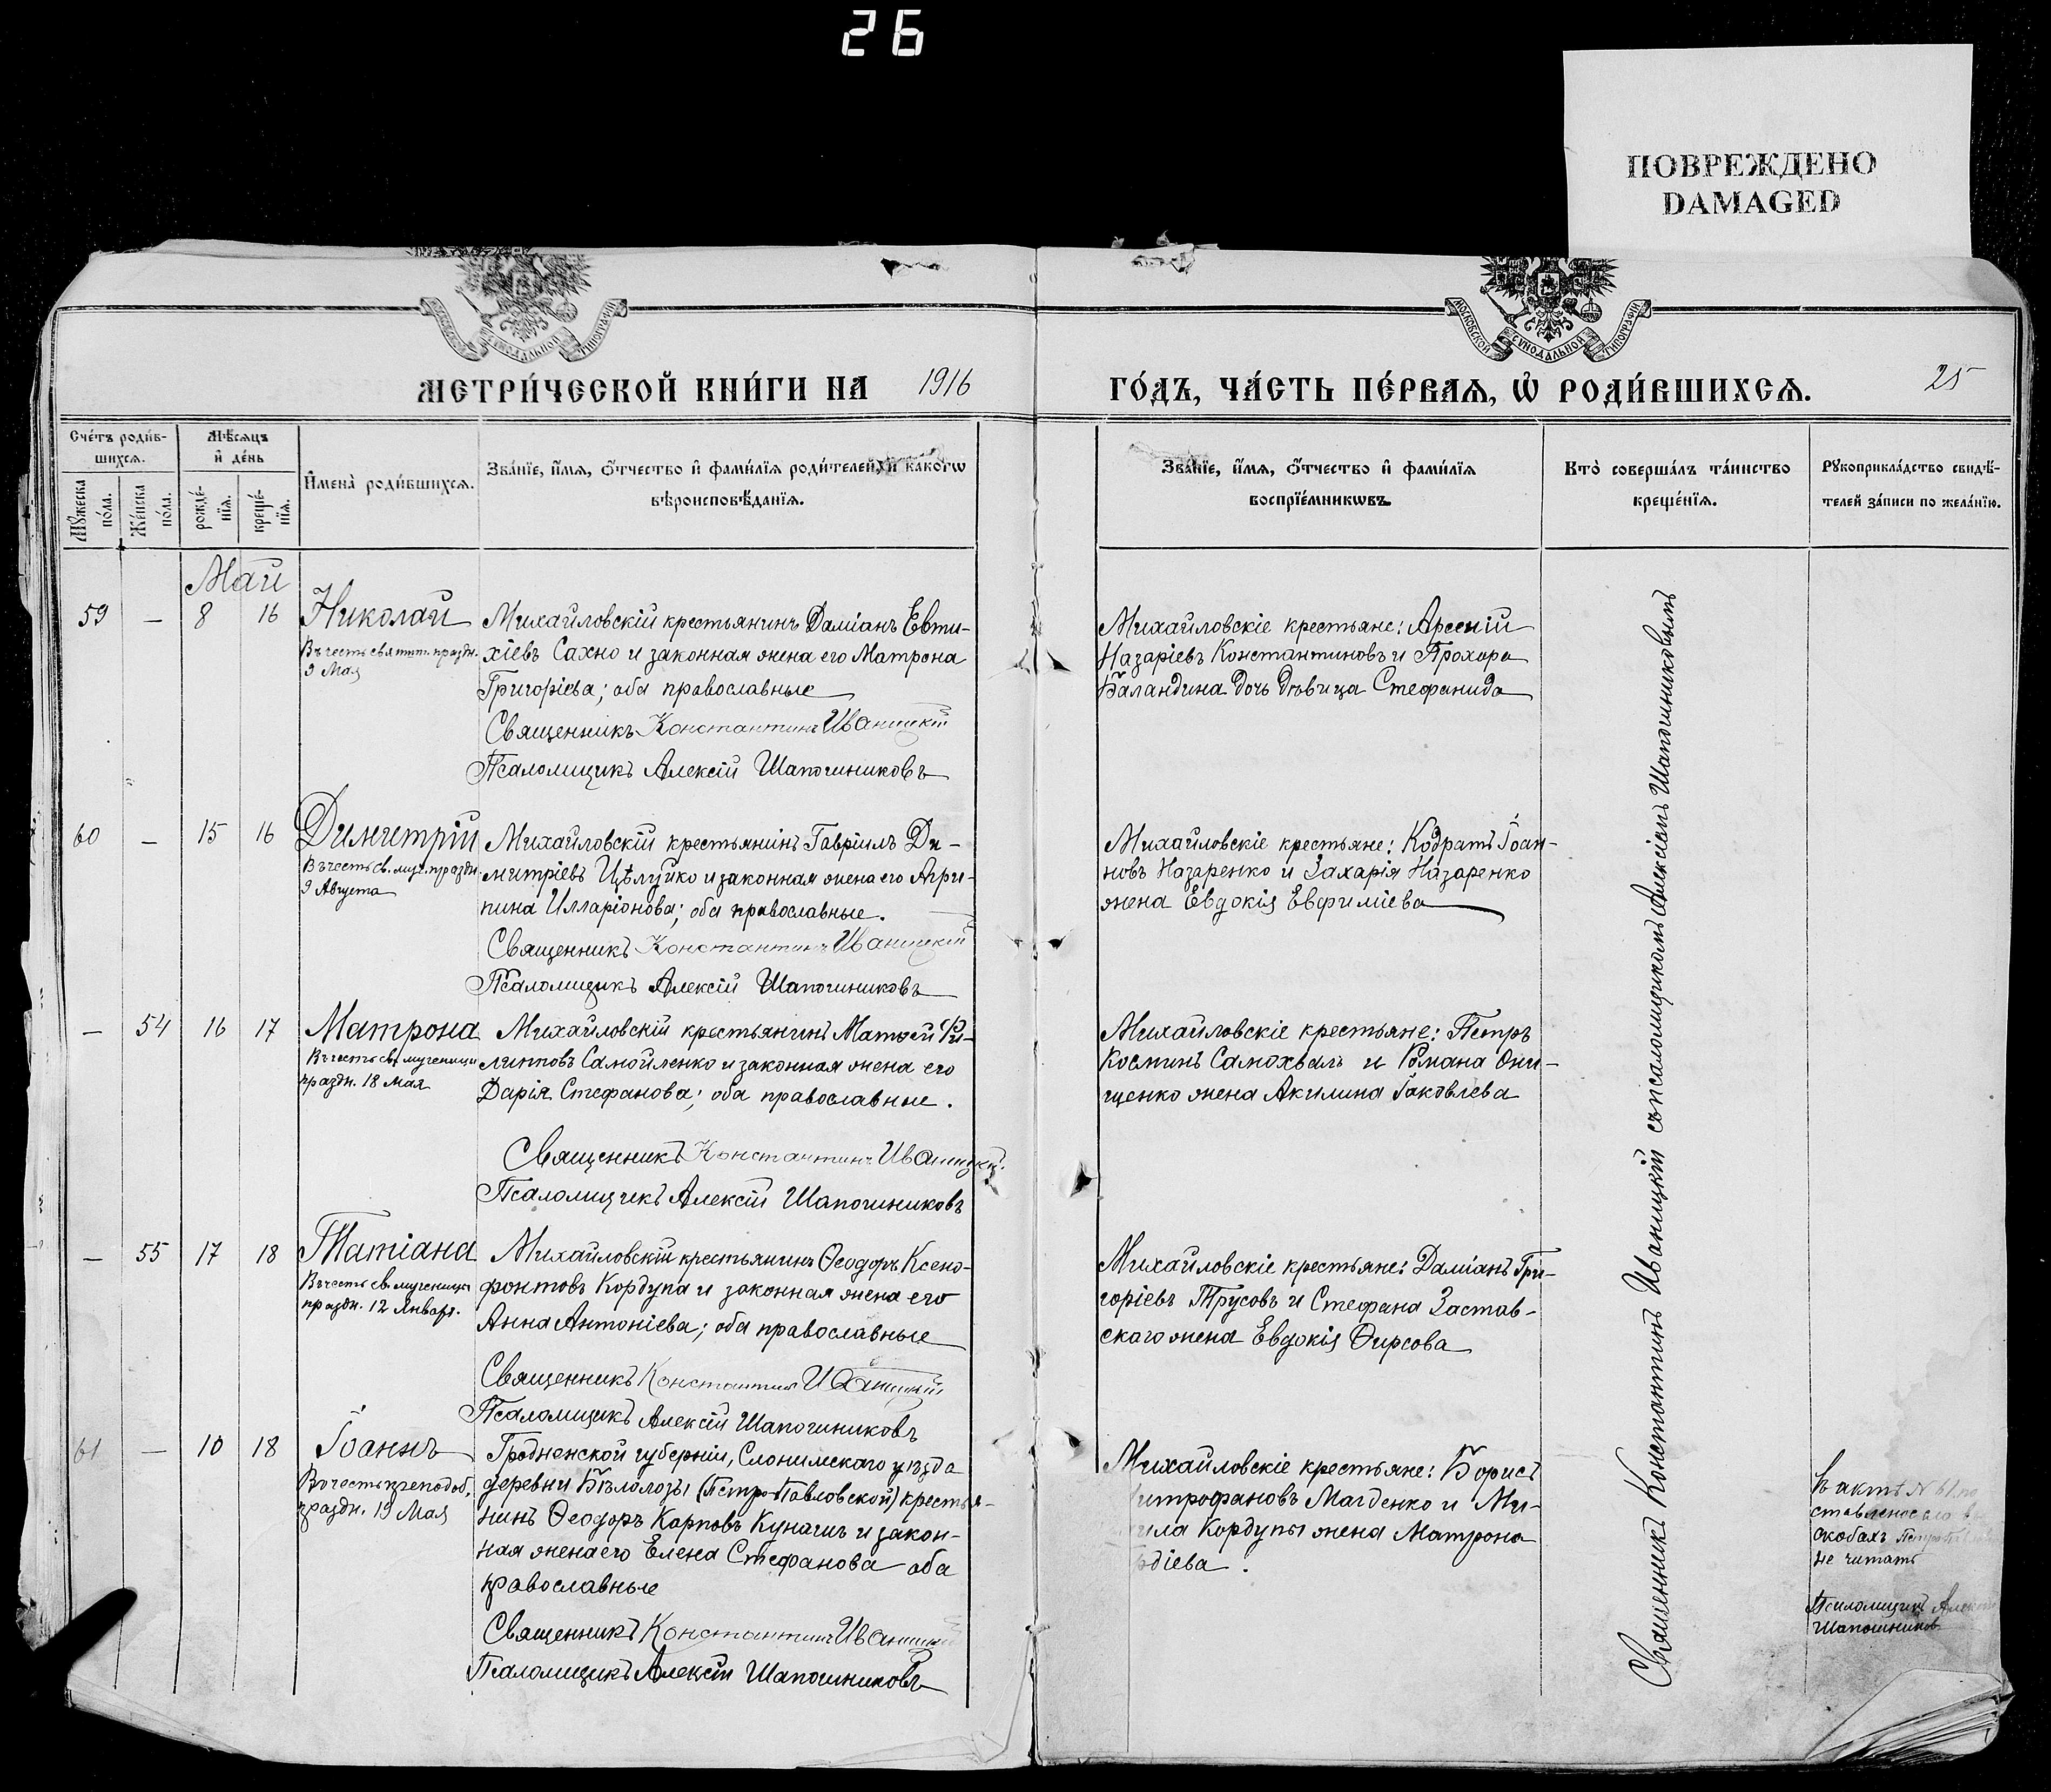 26
ПОВРЕЖДЕНО
DAMAGED
МОСКОВСКОЙ СѴНОДАЛЬНОЙ ТИПОГРАФІИ
МЕТРИ́ЧЕСКОЙ КНИ́ГИ НА 1916
ГО́ДЪ, ЧА́СТЬ ПЕ́РВАѦ, Ѽ РОДИ́ВШИХСѦ.
25
Сче́тъ роди́в-
шихсѧ.
Мꙋжеска по́ла.
Же́нска по́ла.
Мѣ́сѧцъ
и҆ де́нь
рожде́-
нїѧ.
креще́-
нїѧ.
И҆мена̀ роди́вшихсѧ.
Зва́нїе, и҆́мѧ, ѻ҆́тчество и҆ фами́лїѧ роди́телей, и҆ како́гѡ
вѣроисповѣ́данїѧ.
Зва́нїе, и҆́мѧ, ѻ҆́тчество и҆ фами́лїѧ
воспрїе́мникѡвъ.
Кто̀ соверша́лъ та́инство
креще́нїѧ.
Рꙋкоприкла́дство свидѣ́-
телей за́писи по жела́нїю.
Май
59 — 8 16 Николай
Въ честь святит. праздн.
9 Мая
Михайловскій крестьянинъ Даміанъ Евти-
хіевъ Сахно и законная жена его Матрона
Григоріева; оба православные
Священникъ Константинъ Иваницкій
Псаломщикъ Алексій Шапошниковъ
Михайловскіе крестьяне: Арсеній
Назаріевъ Константиновъ и Прохора
Баландина дочь дѣвица Стефанида
60 — 15 16 Димитрій
Въ честь св. муч. праздн.
9 Августа
Михайловскій крестьянинъ Гавріилъ Ди-
митріевъ Цѣлуйко и законная жена его Агри-
пина Илларіонова; оба православные.
Священникъ Константинъ Иваницкій
Псаломщикъ Алексій Шапошниковъ
Михайловскіе крестьяне: Кодратъ Іоан-
новъ Назаренко и Захарія Назаренко
жена Евдокія Евфиміева
— 54 16 17 Матрона
Въ честь св. мученицы
праздн. 18 Мая
Михайловскій крестьянинъ Матѳей Фи-
липповъ Самойленко и законная жена его
Дарія Стефанова; оба православные.
Священникъ Константинъ Иваницкій
Псаломщикъ Алексій Шапошниковъ
Михайловскіе крестьяне: Петръ
Косминъ Самохвалъ и Романа Они-
щенко жена Акилина Іаковлева
— 55 17 18 Татіана
Въ честь св. мученицы
праздн. 12 Января.
Михайловскій крестьянинъ Ѳеодоръ Ксено-
фонтовъ Кордупа и законная жена его
Анна Антоніева; оба православные
Священникъ Константинъ Иваницкій
Псаломщикъ Алексій Шапошниковъ
Михайловскіе крестьяне: Даміанъ Гри-
горіевъ Трусовъ и Стефана Застав-
скаго жена Евдокія Ѳирсова
61 — 10 18 Іоаннъ
Въ честь преподоб.
праздн. 19 Мая
Гродненской губерніи, Слонимскаго уѣзда
деревни Бѣлолозы (Петро-Павловской) крестья-
нинъ Ѳеодоръ Карповъ Кунашъ и закон-
ная жена его Елена Стефанова оба
православные
Священникъ Константинъ Иваницкій
Псаломщикъ Алексій Шапошниковъ
Михайловскіе крестьяне: Борисъ
итрофановъ Магденко и Ми-
ила Кордупы жена Матрона
діева.
Священникъ Константинъ Иваницкій съ псаломщикомъ Алексіемъ Шапошниковымъ
Въ актѣ № 61 по
ставленное
скобахъ
не читать
Псаломщикъ Алексій
Шапошников